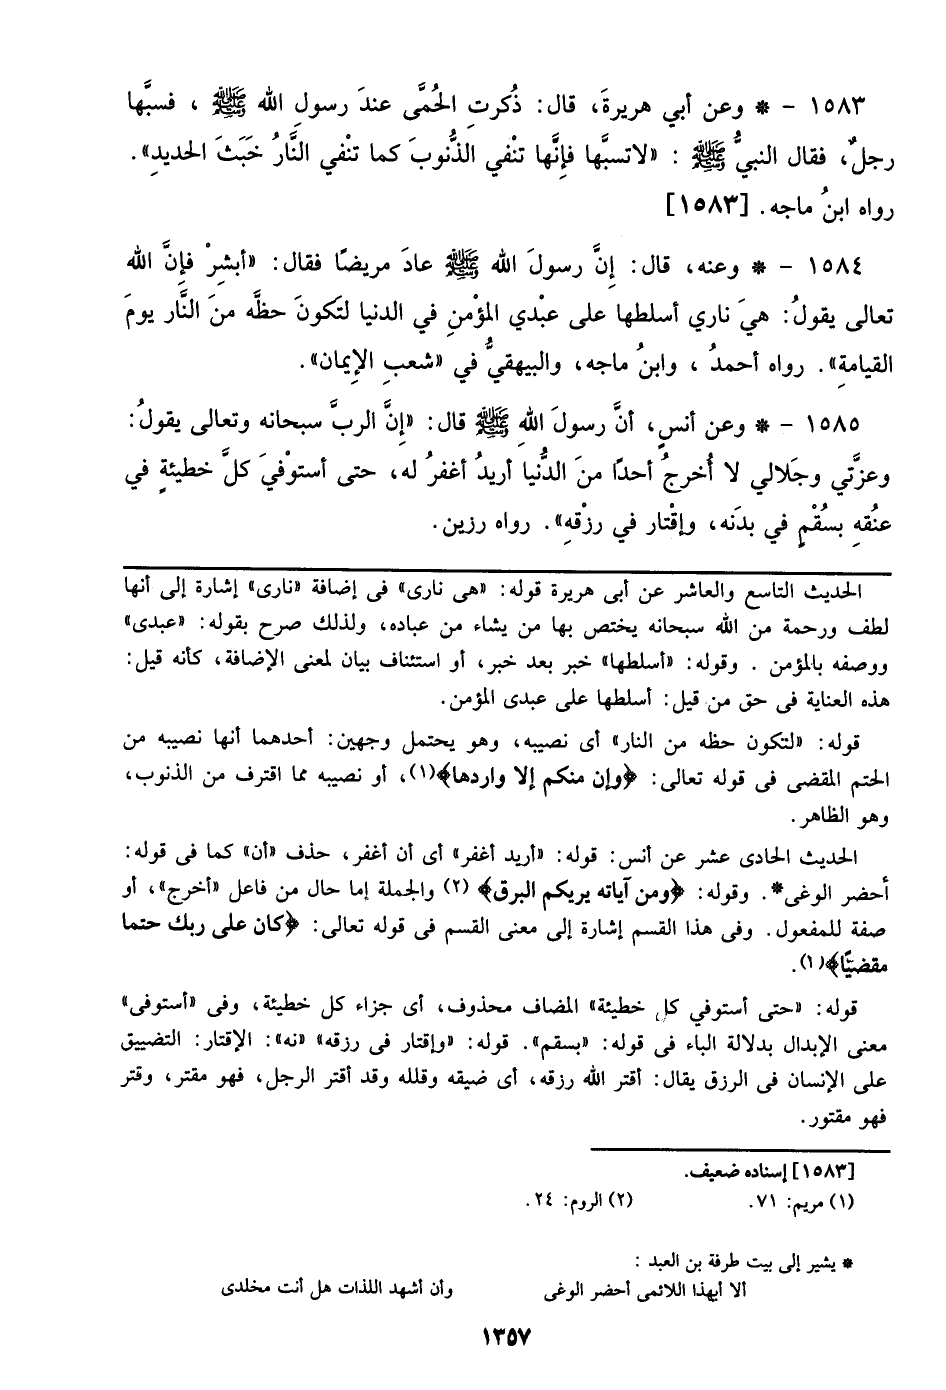 ١٥٨٣ - * وعن أبي هريرةَ، قال: ذُكرتِ الحُمَّى عندَ رسولِ الله ﷺ ، فسبَّها
رجلٌ، فقال النبيُّ ﷺ : «لاتسبَّها فإِنَّها تنْفي الذُّنوبَ كما تنْفي النَّارُ خَبَثَ الحديدِ».
رواه ابنُ ماجه. [١٥٨٣]
١٥٨٤ - * وعنه، قال: إِنَّ رسولَ الله ﷺ عادَ مريضًا فقال: «أبشرْ فإِنَّ الله
تعالى يقولُ: هيَ ناري أسلطها على عبْدي المؤْمنِ في الدنيا لتَكونَ حظَّه منَ النَّار يومَ
القيامةِ». رواه أحمدُ ، وابنُ ماجه، والبيهقيُّ في «شعبِ الإِيمان».
١٥٨٥ - * وعن أنسٍ، أنَّ رسولَ اللهِ ﷺ قال: «إِنَّ الربَّ سبحانه وتعالى يقولُ:
وعزَّتي وجَلالي لا أُخرجُ أحدًا منَ الدُّنيا أريدُ أغفرُ له، حتى أستوْفيَ كلَّ خطيئةٍ في
عنُقهِ بسُقْمٍ في بدَنه، وإقْتار في رزْقهِ». رواه رزين.
الحديث التاسع والعاشر عن أبى هريرة قوله: «هى نارى» فى إضافة «نارى» إشارة إلى أنها
لطف ورحمة من الله سبحانه يختص بها من يشاء من عباده، ولذلك صرح بقوله: «عبدى»
ووصفه بالمؤمن . وقوله: «أسلطها» خبر بعد خبر، أو استئناف بيان لمعنى الإضافة، كأنه قيل:
هذه العناية فى حق من قيل: أسلطها على عبدى المؤمن.
قوله: «لتكون حظه من النار» أى نصيبه، وهو يحتمل وجهين: أحدهما أنها نصيبه من
الحتم المقضى فى قوله تعالى: ﴿وإن منكم إلا واردها﴾(١)، أو نصيبه مما اقترف من الذنوب،
وهو الظاهر.
الحديث الحادى عشر عن أنس: قوله: «أريد أغفر» أى أن أغفر، حذف «أن» كما فى قوله:
أحضر الوغى*. وقوله: ﴿ومن آياته يريكم البرق﴾ (٢) والجملة إما حال من فاعل «أخرج»، أو
صفة للمفعول. وفى هذا القسم إشارة إلى معنى القسم فى قوله تعالى: ﴿كان على ربك حتما
مقضيًا﴾(١).
قوله: «حتى أستوفي كل خطيئة» المضاف محذوف، أى جزاء كل خطيئة، وفى «أستوفى»
معنى الإبدال بدلالة الباء فى قوله: «بسقم». قوله: «وإقتار فى رزقه» «نه»: الإقتار: التضييق
على الإنسان فى الرزق يقال: أقتر الله رزقه، أى ضيقه وقلله وقد أقتر الرجل، فهو مقتر، وقتر
فهو مقتور.
[١٥٨٣] إسناده ضعيف.
(١) مريم: ٧١. (٢) الروم: ٢٤.
* يشير إلى بيت طرفة بن العبد :
ألا أيهذا اللائمى أحضر الوغى وأن أشهد اللذات هل أنت مخلدى
١٣٥٧